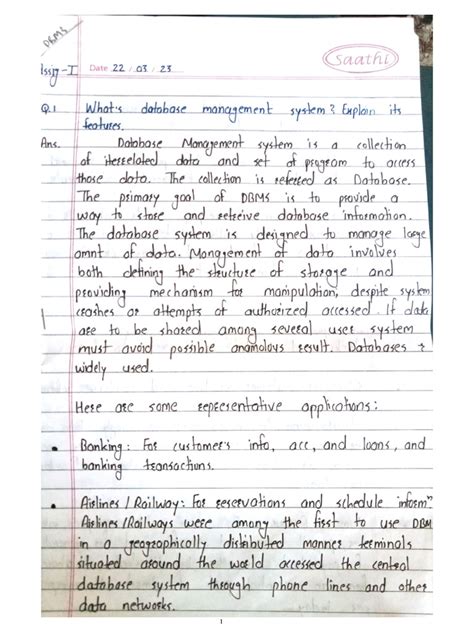 DBMS
Assig-I Date 22 / 03 / 23 Saathi
Q.1 What's database management system? Explain its
features.
Ans. Database Management system is a collection
of iterrelated data and set of program to access
those data. The collection is referred as Database.
The primary goal of DBMS is to provide a
way to store and retreive database information.
The database system is designed to manage large
amnt of data. Management of data involves
both defining the structure of storage and
providing mechanism for manipulation, despite system
crashes or attempts of authorized accessed. If data
are to be shared among several user system
must avoid possible anamolous result. Databases r
widely used.
Here are some representative applications:
• Banking: For customer's info, acc, and loans, and
banking transactions.
• Airlines / Railway: For reservations and schedule inform"
Airlines / Railways were among the first to use DBM
in a geographically distributed manner terminals
situated around the world accessed the central
database system through phone lines and other
data networks.
1